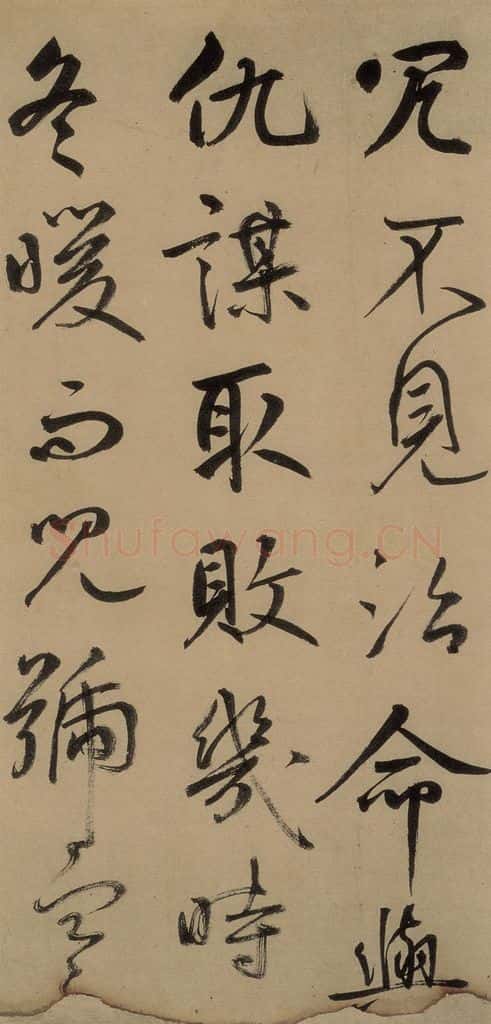 冗不見治命與
仇謀取敗幾時
冬暖而兒號寒
Shufawang.CN